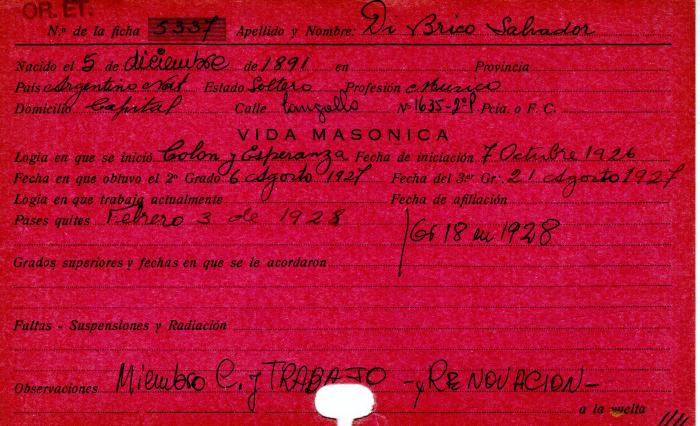 OR. ET.
N.º de la ficha 5337 Apellido y Nombre: Di Brico Salvador
Nacido el 5 de diciembre de 1891 en Provincia
País Argentino Nat Estado Soltero Profesión Musico
Domicilio Capital Calle N° 1635-2°P. Pcia. o F. C.
VIDA MASONICA
Logia en que se inició Colon y Esperanza Fecha de iniciación 7 Octubre 1926
Fecha en que obtuvo el 2° Grado 6 Agosto 1927 Fecha del 3er Gr. 21 Agosto 1927
Logia en que trabaja actualmente Fecha de afiliación
Pases quites Febrero 3 de 1928
Gr 18 en 1928
Grados superiores y fechas en que se le acordaron
Faltas - Suspensiones y Radiación
Observaciones Miembro C. y TRABAJO - y RENOVACION -
a la vuelta